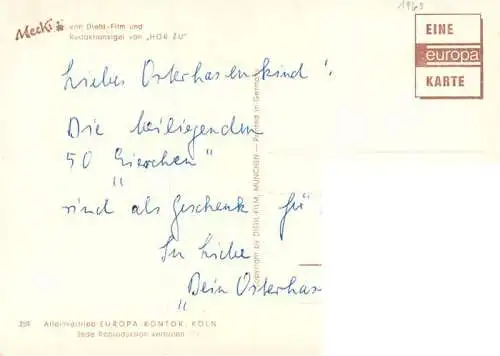 1965
Mecki
von Diehl-Film und
Redaktionsigel von „HÖR ZU"
EINE
europa
KARTE
Liebes Osterhasenkind!
Die beiliegenden
50 „Eierchen"
sind als Geschenk fü
In Liebe
„Dein Osterhas
Copyright by DIEHL-FILM, MÜNCHEN — Printed in Germa
259 Alleinvertrieb EUROPA-KONTOR, KÖLN
Jede Reproduktion verboten